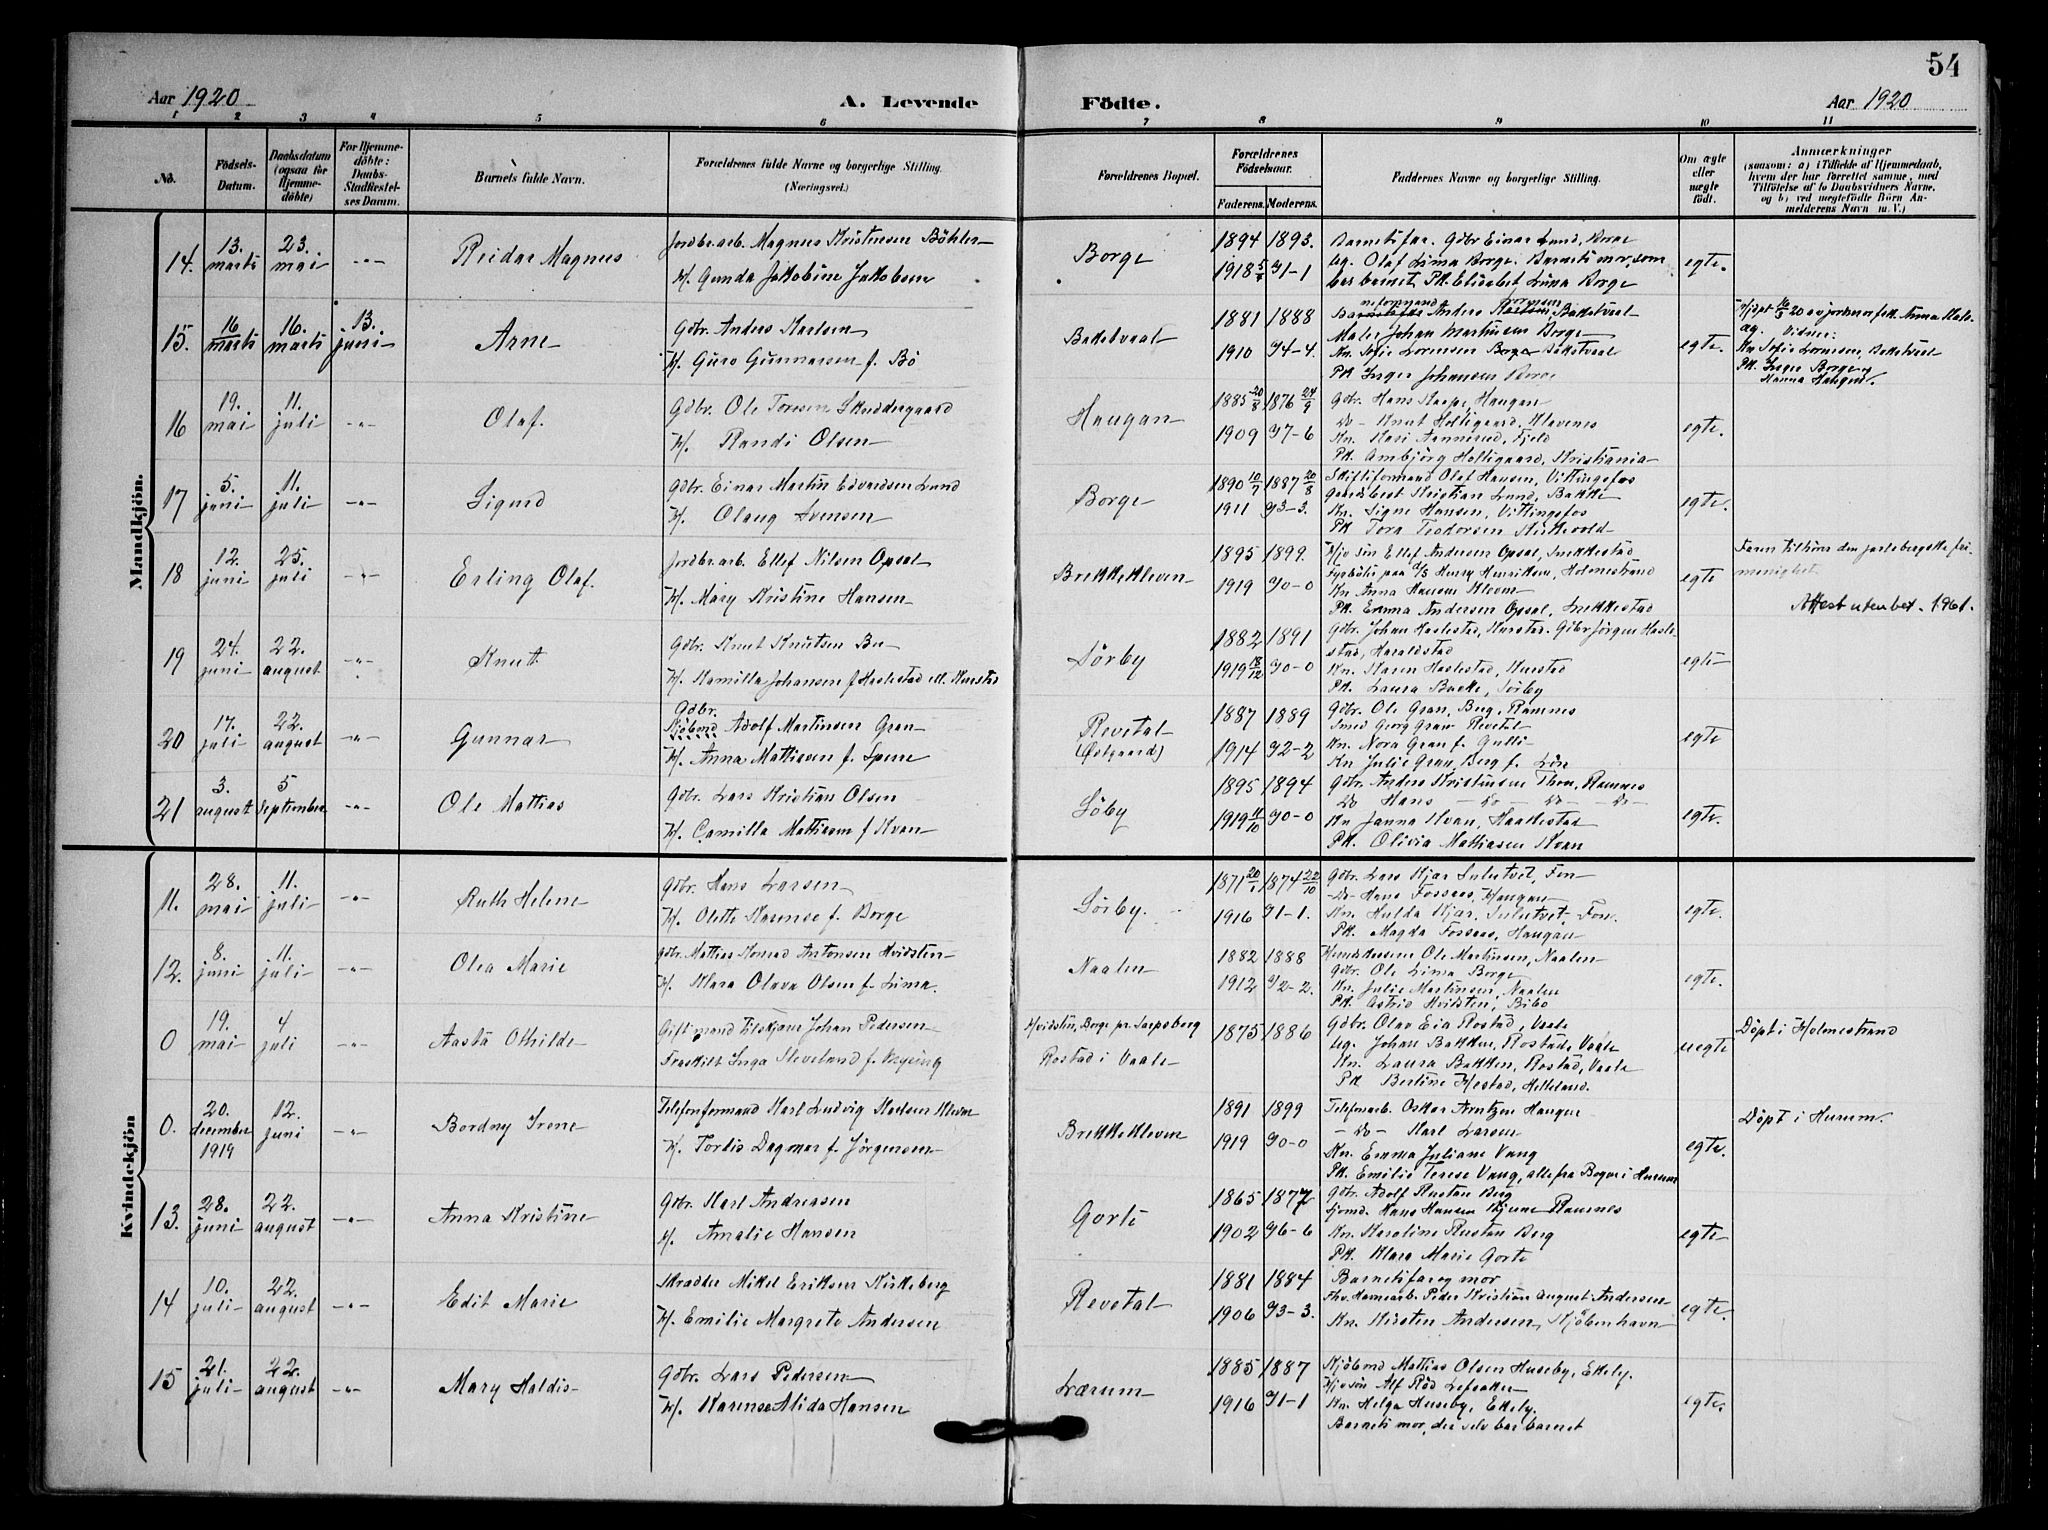 54
Aar 1920
A. Levende
Födte.
Aar 1920
1 2 3 4 5 6 7 8 9 10 11
No.
Födsels-Datum.
Daabsdatum (ogsaa for Hjemme-döbte)
For Hjemme-döbte: Daabs-Stadfæstel-ses Datum.
Barnets fulde Navn.
Forældrenes fulde Navne og borgerlige Stilling. (Næringsvei.)
Forældrenes Bopæl.
Forældrenes Födselsaar.
Faderens. Moderens.
Faddernes Navne og borgerlige Stilling.
Om ægte eller uægte födt.
Anmærkninger
(saasom: a) i Tilfælde af Hjemmedaab,
hvem der har forrettet samme, med
Tilföielse af to Daabsvidners Navne,
og b) ved uægtefödte Börn An-
melderens Navn m. V.)
Mandkjön.
14. 13. marts 23. mai -"- Reidar Magnus
Jordbr.arb. Magnus Kristensen Böhler
H. Gunda Jakobine Jakobsen
Borge
1894 1893.
1918 31-1
Barnets far. Gdbr Einar Lund, Borge
Ug. Olaf Lima Borge. Barnets mor, som
bar barnet, Pk. Elisabet Lima Borge
egte.
15. 16 marts 16. marts 13. juni Arne
Gdbr. Anders Karlsen
H. Guro Gunnarsen f. Bö
Bakstvaal
1881 1888
1910 34-4.
Maler Johan Marthisen Borge
Kn. Sofie Lorensen Borge Bakstvaal
Pk. Inger Johansen Borge
egte.
Vidner:
Kn Sofie Lorensen, Bakstvaal
Pk. Inger Borge
16 19. mai 11. juli -"- Olaf.
Gdbr. Ole Toresen Skuddergaard
H. Randi Olsen
Haugan
1885 20/8 1876 24/9
1909 37-6
Gdbr. Hans Kaape, Haugan
Do- Knut Holtigaard, Klavenes
Kn. Kari Aannerud, Fjeld
Pk. Ambjörg Holtigaard, Kristiania
egte.
17 5. juni 11. juli -"- Sigurd
Gdbr. Einar Martin Edvardsen Lund
H. Olaug Svensen
Borge
1890 10/7 1887 20/8
1911 33-3.
Skiftsformand Olaf Hansen, Vittingsfos
Gaardbest Kristian Lund, Bakke
Kn. Signe Hansen, Vittingsfos
Pk Tora Teodorsen Kirkevold
egte.
18 12. juni 25. juli -"- Erling Olaf.
Jordbr.arb. Ellef Nilsen Opsal
H. Mary Kristine Hansen
Brekkekleven
1895 1899.
1919 30-0
Hjv sön Ellef Andersen Opsal, Snekkestad
Fyrböter paa A/S Henry Henriksen, Holmestrand
Kn Anna Hansen Kleven
Pk. Emma Andersen Opsal, Snekkestad
egte
Faren tilhörer den jarlsbergske fri-
menighet
Attest utenbet. 1961.
19 24. juni 22. august -"- Knut
Gdbr. Knut Knutsen Bu
H. Kamilla Johansen f Haslestad ell. Kurstad
Sörby
1882 1891
1919 18/12 30-0
Gdbr. Johan Haslestad, Kurstad. Gdbr Jörgen Hasle-
stad, Haraldstad
Kn. Karen Haslestad, Kurstad
Pk. Laura Bakke, Sörby
egte
20 17. juli 22. august -"- Gunnar
Gdbr.
Kjöbmd Adolf Martinsen Gran
H. Anna Mattisen f. Spene
Revetal
(Østgaard)
1887 1889
1914 32-2
Gdbr. Ole Gran, Berg, Ramnes
Smed Georg Gran Revetal
Kn. Nora Gran f. Gulli
Kn Julie Gran, Berg f. Lön
egte
21 3. august 5 September -"- Ole Mattias
Gdbr. Lars Kristian Olsen
H. Camilla Mattisen f Kvan
Söby
1895 1894
1919 11/10 30-0
Gdbr. Anders Kristensen Thon, Ramnes
Do Hans -do- do- -do-
Kn Janna Kvan, Haaklestad
Pk. Olivia Mathiasen Kvan
egte.
Kvindekjön
11. 28. mai 11. juli -"- Ruth Helene
Gdbr. Hans Larsen
H. Olette Karense f. Borge
Sörby.
1871 1874 22/10
1916 31-1.
Gdbr. Lars Kjær Sulutvet, Fon
-Do- Hans Fossaas, Haugan
Kn. Hulda Kjær, Sulutvet, Fon.
Pk. Magda Fossaas, Haugan
egte.
12. 8. juni 11. juli -"- Olea Marie
Gdbr. Mattias Konrad Antonsen Hvidsten
H. Klara Olava Olsen f. Lima.
Naalen
1882 1888
1912 32-2.
Ole Martinsen, Naalen
Gdbr. Ole Lima Borge
Kn. Julie Martinsen, Naalen
Pk. Astrid Hvidsten, Bibo
egte.
0 19. mai 4 juli -"- Aasta Othilde
Gift mand Tilskjær Johan Pedersen
Fraskilt Inga Sleveland f. Nysing
Hvidsten, Borge pr. Sarpsborg
Rostad i Vaale
1875 1886
Gdbr. Olav Eia Rostad, Vaale
Ug. Johan Bakken, Rostad, Vaale
Kn. Laura Bakken, Rostad, Vaale
Pk Berline Hestad, Helleland
uegte
Döpt i Holmestrand
0. 20. december 1919 12. juni -"- Bordny Irene
Telefonformand Karl Ludvig Karlsen Kleven
H. Tordis Dagmar f. Jörgensen
Brekkekleven
1891 1899
1919 30-0
Telefonarb. Oskar Arntzen Haugen
-Do- Karl Larsen
Kn. Emma Juliane Vang
Pk. Emilie Terese Vang, alle fra Bogen i Hurum
egte.
Döpt i Hurum.
13. 28. juni 22. august -"- Anna Kristine
Gdbr. Karl Andreasen
H. Amalie Hansen
Gorte
1865 1877
1902 36-6
Gdbr. Adolf Rustan Berg
Gjmd. Hans Hansen Kjenne Ramnes
Kn. Karoline Rustan Berg
Pk. Klara Marie Gorte
egte
14 10. juli 22. august -"- Edit Marie
Skrædder Mikel Eriksen Kirkeberg
H. Emilie Margrete Andersen
Revetal
1881 1884
1906 33-3.
Barnets far og mor
Fhv. Havnearb. Peder Kristian August Andersen
Kn. Kirsten Andersen, Kjöbenhavn
egte.
15 21. juli 22. august -"- Mary Haldis
Gdbr. Lars Pedersen
H. Karense Alida Hansen
Lærum
1885 1887
1916 31-1
Kjöbmd Mattias Olsen Huseby, Ekely.
Hjv sön Alf Röd Lefsaker
Kn. Helga Huseby, Ekely.
Barnets mor, der selv bar barnet
egte.